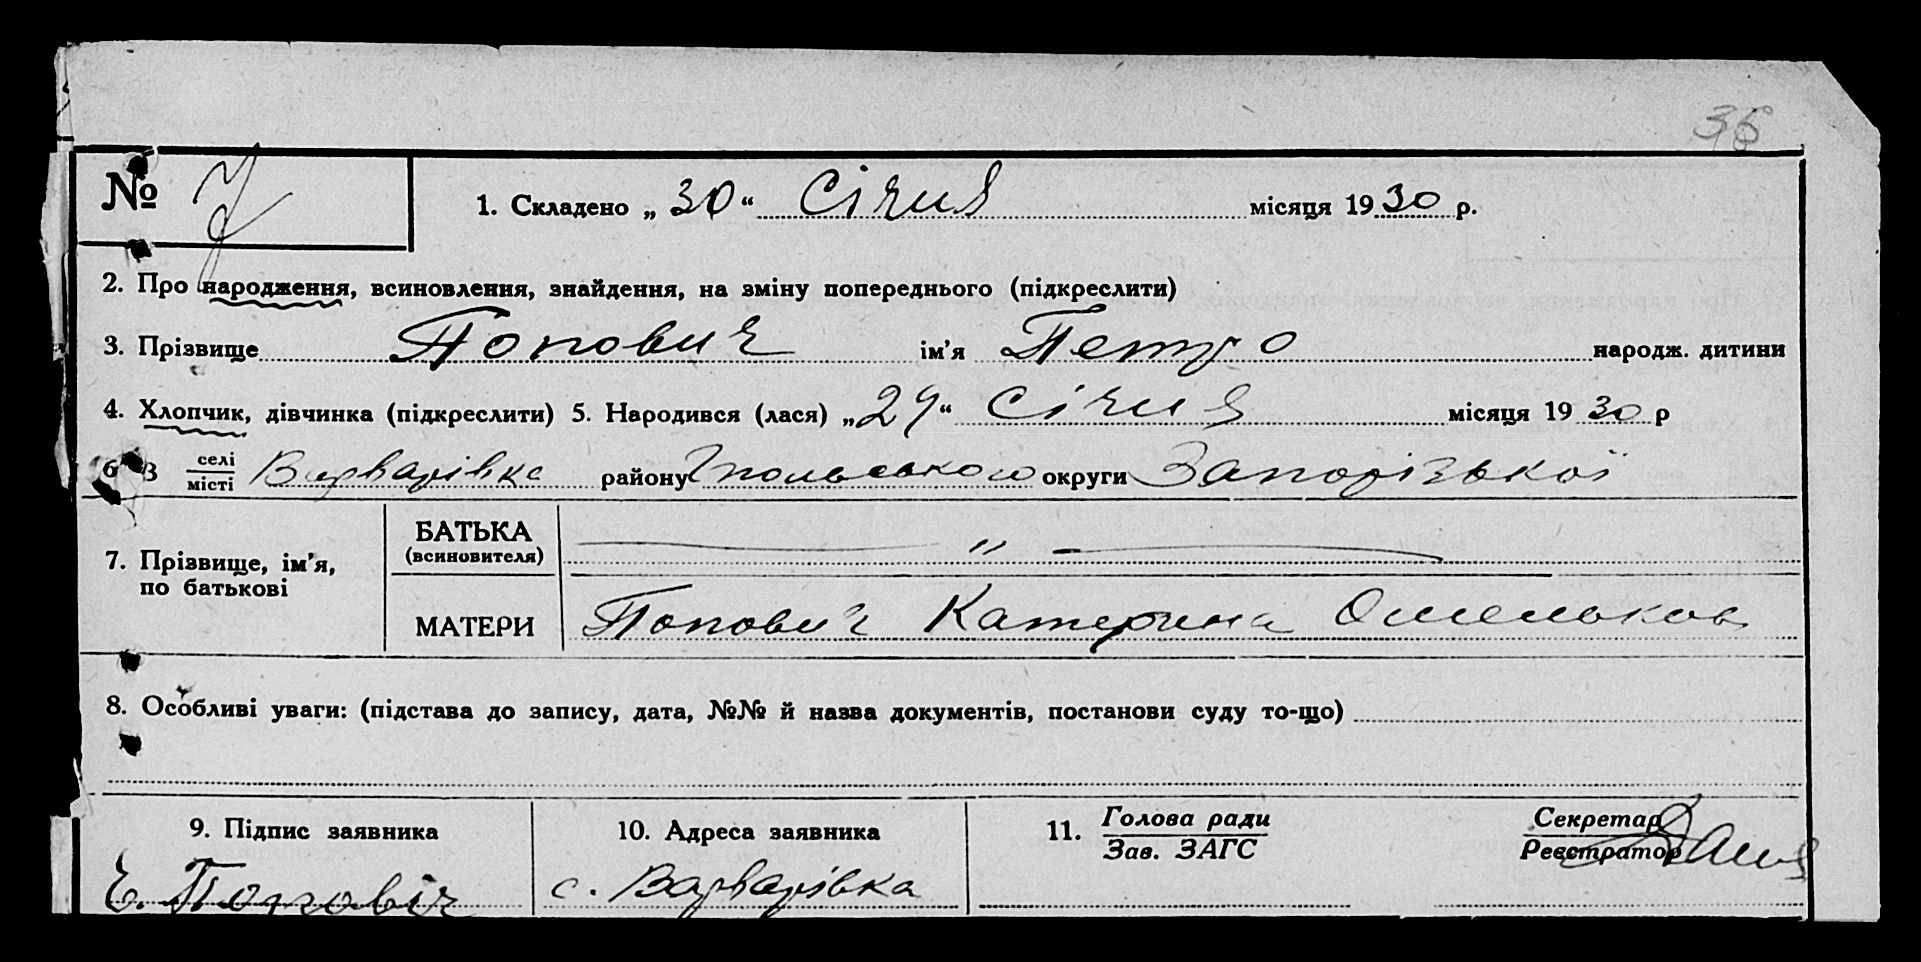 36
№ 7
1. Складено „ 30 “ Січня місяця 1930 р.
2. Про народження, всиновлення, знайдення, на зміну попереднього (підкреслити)
3. Прізвище Попович ім’я Петро народж. дитини
4. Хлопчик, дівчинка (підкреслити) 5. Народився (лася) „29“ Січня місяця 1930 р
6. В селі місті Варварівка району Гпольського округи Запорізької
БАТЬКА
(всиновителя) — " —
7. Прізвище, ім’я,
по батькові
МАТЕРИ Попович Катерина Омельков
8. Особливі уваги: (підстава до запису, дата, №№ й назва документів, постанови суду то-що)
9. Підпис заявника 10. Адреса заявника 11. Голова ради Секретар
Зав. ЗАГС Реєстратор
Е. Попович с. Варварівка